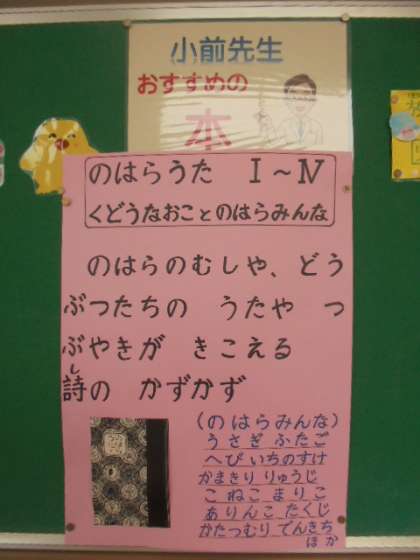 小前先生
おすすめの
本
のはらうた Ⅰ～Ⅳ
くどうなおことのはらみんな
のはらのむしや、どう
ぶつたちの うたや つ
ぶやきが きこえる
し
詩の かずかず
(のはらみんな)
うさぎ ふたご
へび いちのすけ
かまきり りゅうじ
こねこ まりこ
ありんこ たくじ
かたつむり でんきち
ほか